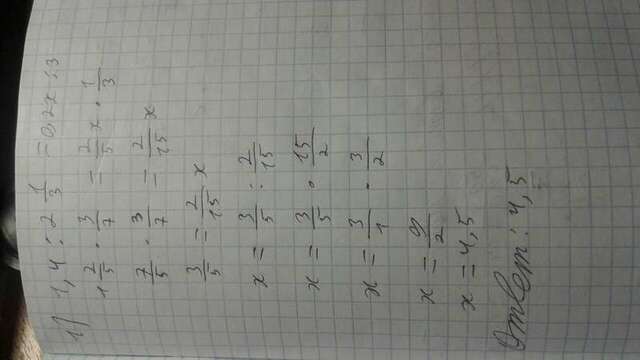 1) 1,4 : 2 1/3 = 0,2x : 3
1 2/5 · 3/7 = 2/5 x · 1/3
7/5 · 3/7 = 2/15 x
3/5 = 2/15 x
x = 3/5 : 2/15
x = 3/5 · 15/2
x = 3/1 · 3/2
x = 9/2
x = 4,5
Ответ: 4,5